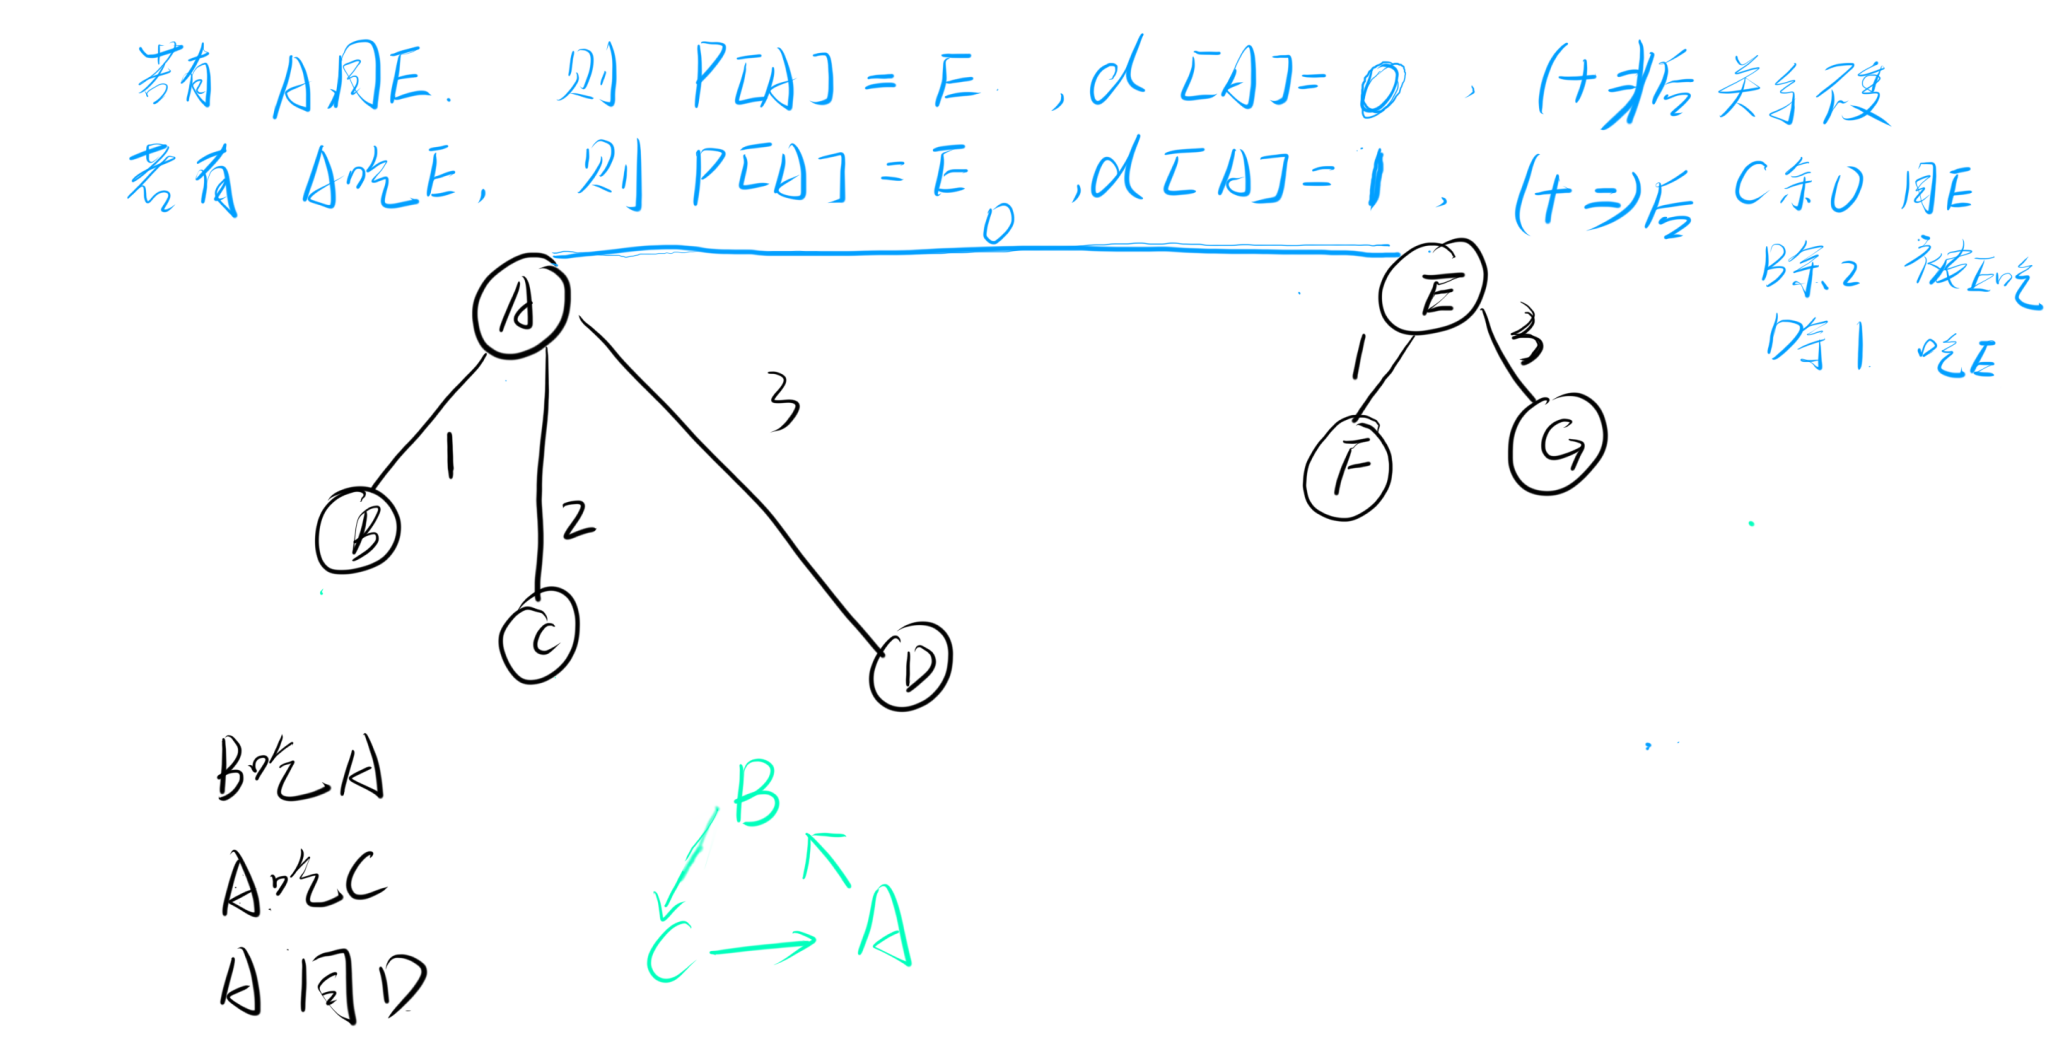 若有 A同E. 则 P[A] = E , d[A]= 0 , (+=)后 关系不变
若有 A吃E, 则 P[A] = E , d[A]= 1 , (+=)后 C余0 同E
B余2 被E吃
D余1 吃E
0
A
E
1
2
3
1
3
B
C
D
F
G
B吃A
A吃C
A同D
B
C
A